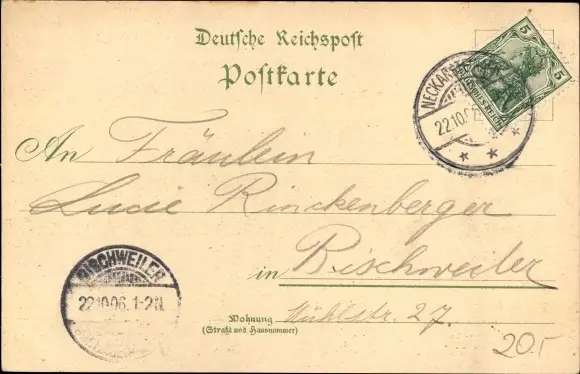 Deutsche Reichspost
Postkarte
5 5
DEUTSCHES REICH
NECKAR
22.10.0
An Fräulein
Lucie Rinckenberger
in Bischweiler
BISCHWEILER
22.10.06. 1-2N.
Wohnung Mühlstr. 27.
(Straße und Hausnummer)
20.-